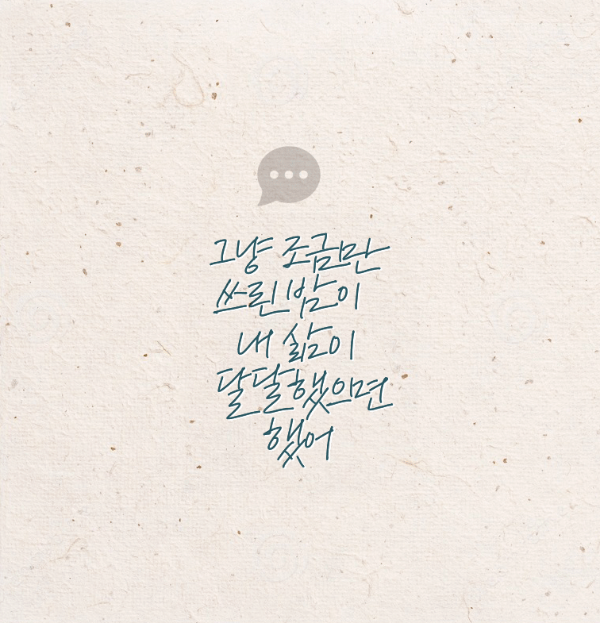 그냥 조금만
쓰린 밤이
내 삶이
달달했으면
했어